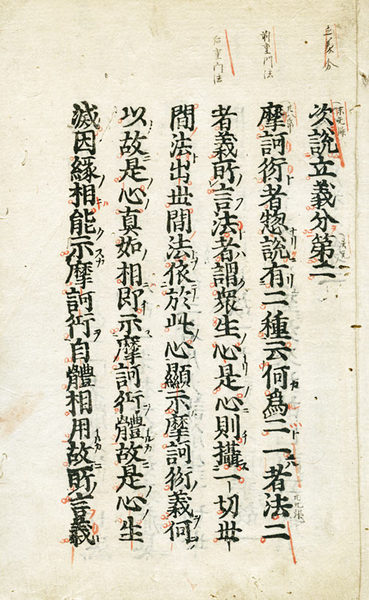 立義分
次說立義分第二
前重門法
摩訶衍者惣說有二種云何為二一者法二
后重門法
者義所言法者謂衆生心是心則攝一切世
間法出世間法依於此心顯示摩訶衍義何
以故是心真如相即示摩訶衍體故是心生
滅因緣相能示摩訶衍自體相用故所言義